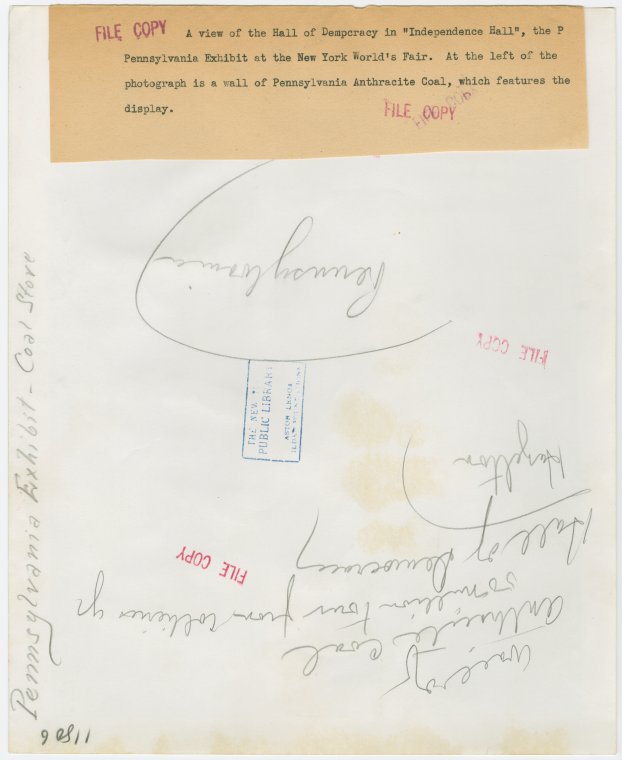 FILE COPY
A view of the Hall of Dempcracy in "Independence Hall", the P
Pennsylvania Exhibit at the New York World's Fair. At the left of the
photograph is a wall of Pennsylvania Anthracite Coal, which features the
display.
FILE COPY
FILE COPY
Pennsylvania
FILE COPY
THE NEW
PUBLIC LIBRARY
ASTOR LENOX
Hazelton
Hall of Democracy
FILE COPY
Wall of
Anthracite Coal
50 million tons from collieries
Pennsylvania Exhibit - Coal Store
11806